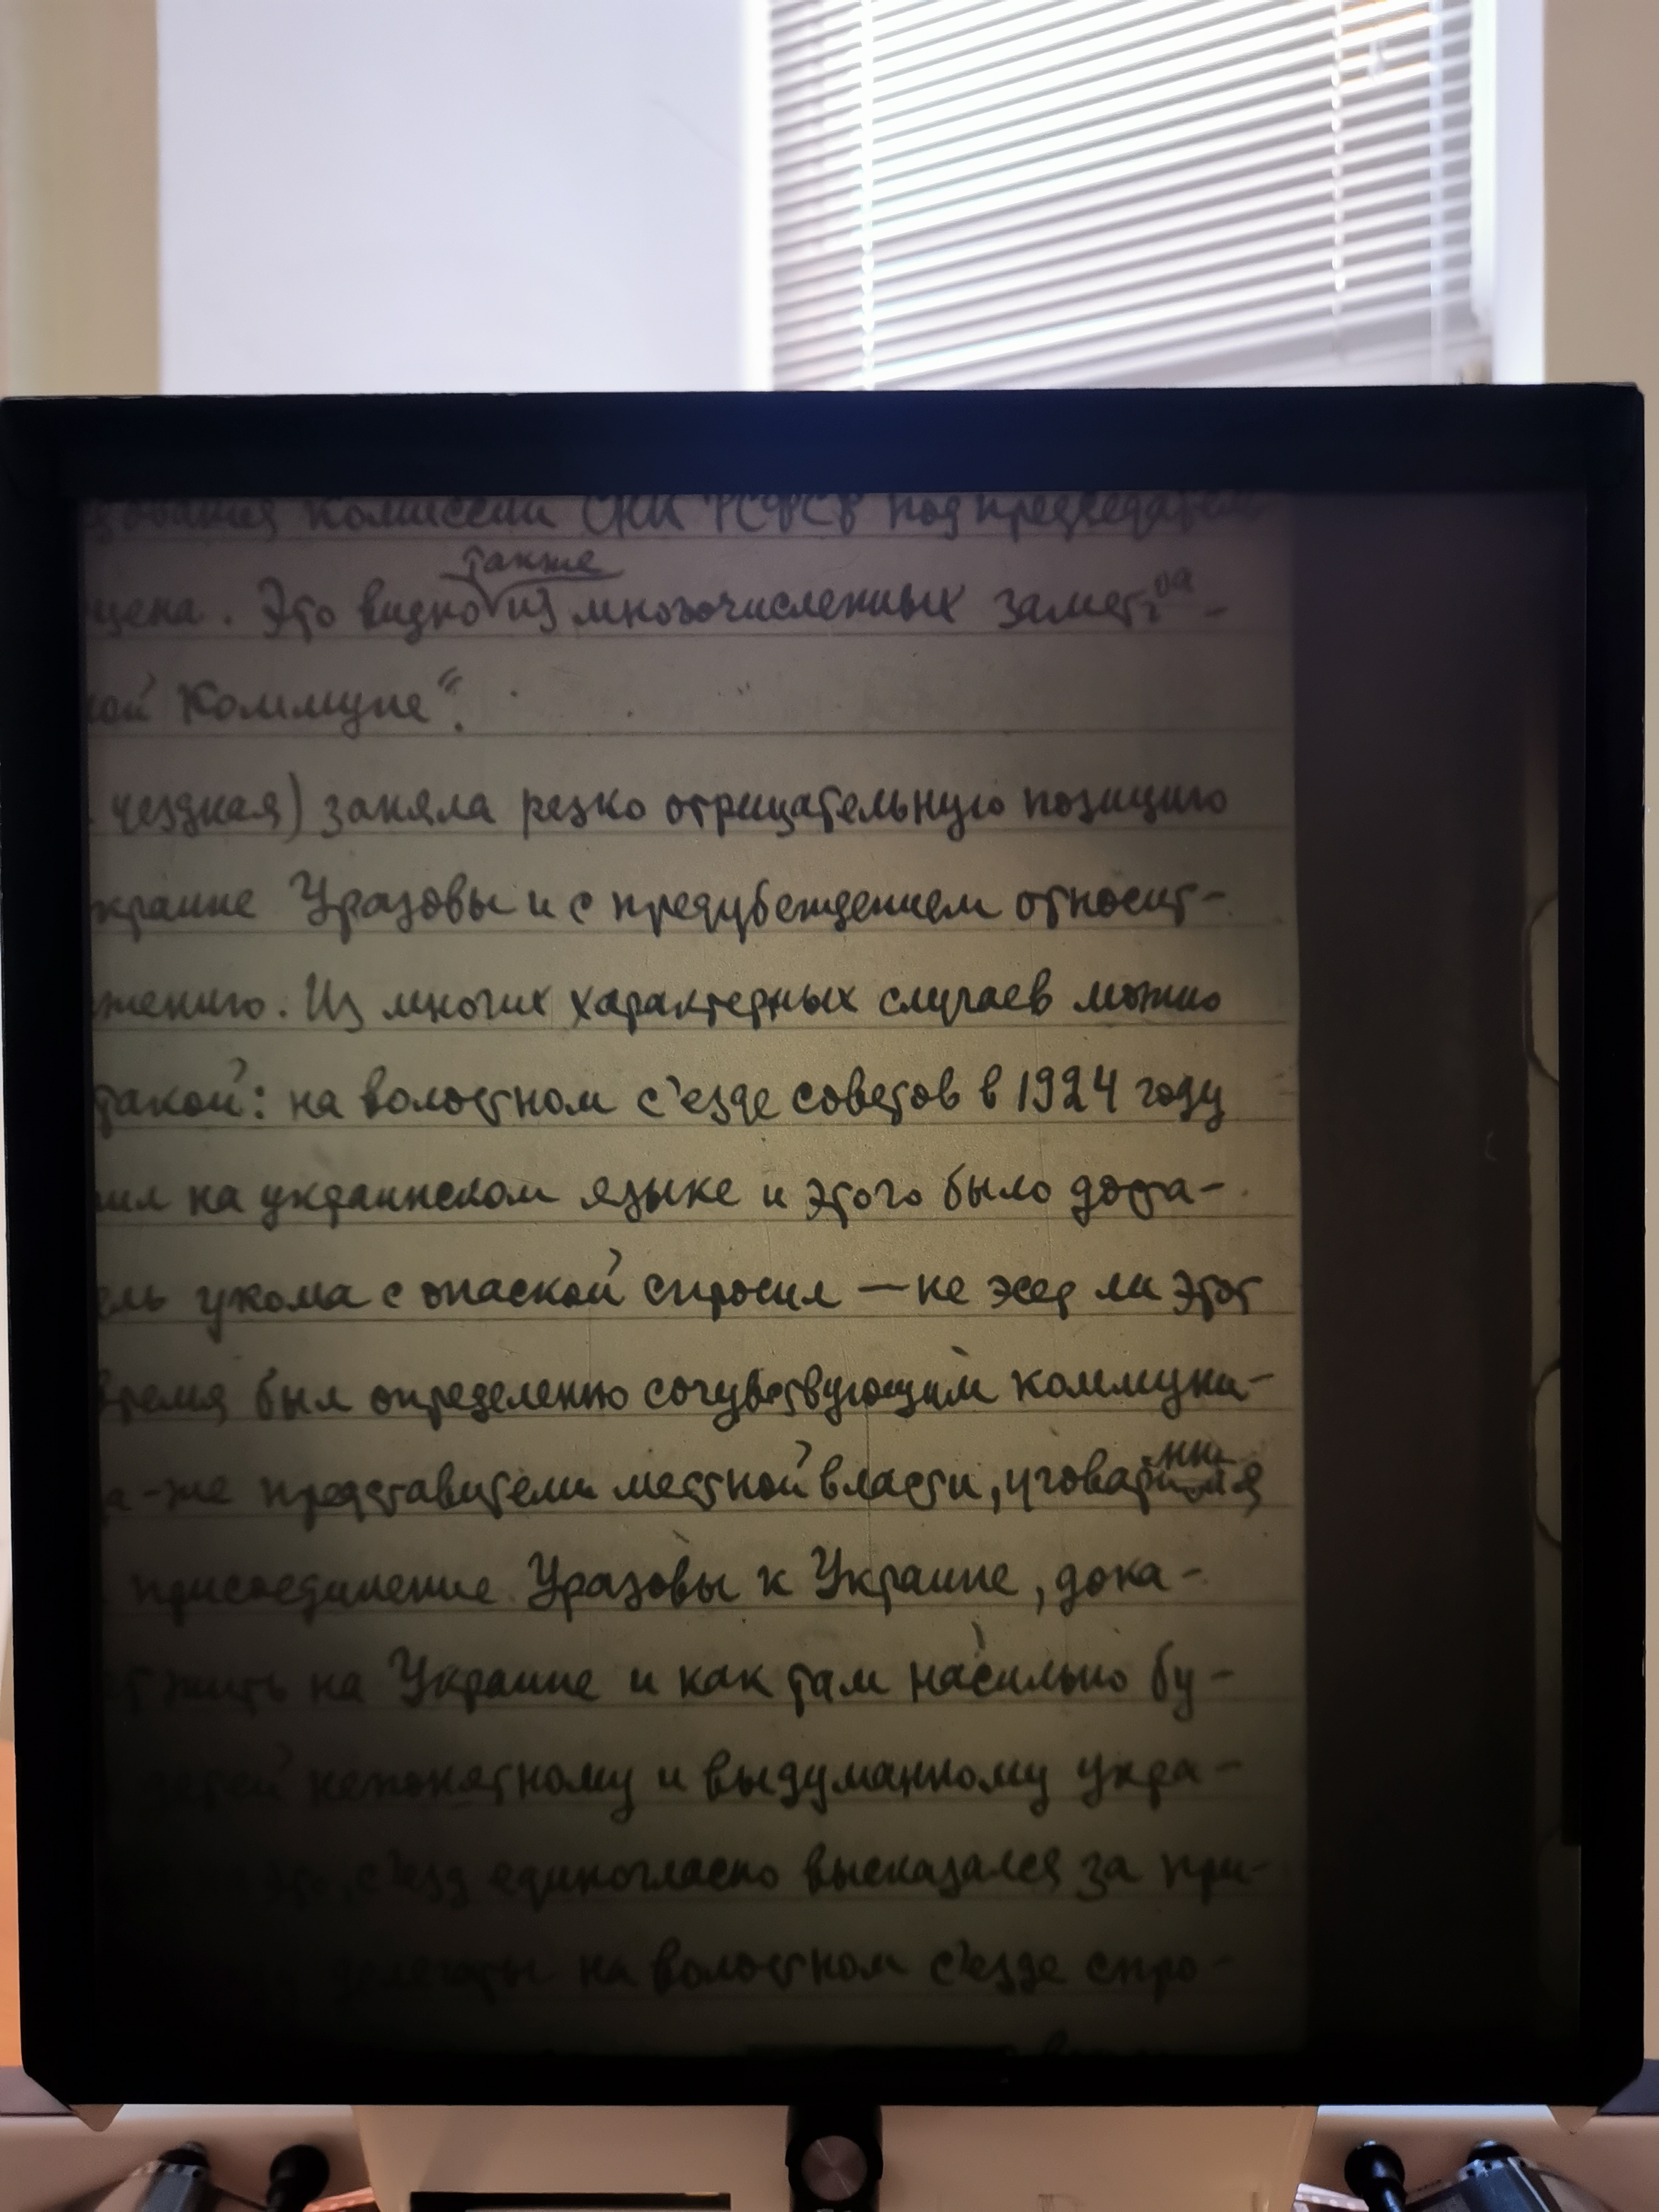 Комиссии СНК РСФСР под председател
также
цена. Это видно из многочисленных замет
кой Коммуне".
уездная) заняла резко отрицательную позицию
краине Уразовы и с предубеждением относит-
жению. Из многих характерных случаев можно
такой: на волостном с'езде советов в 1924 году
ил на украинском языке и этого было доста-
ель укома с опаской спросил — не эсер ли этот
время был определенно сочувствующим коммуни-
а-же представители местной власти,
присоединение Уразовы к Украине, дока-
т жить на Украине и как там насильно бу-
детей непонятному и выдуманному укра-
с'езд единогласно высказался за при-
делегаты на волостном с'езде спро-